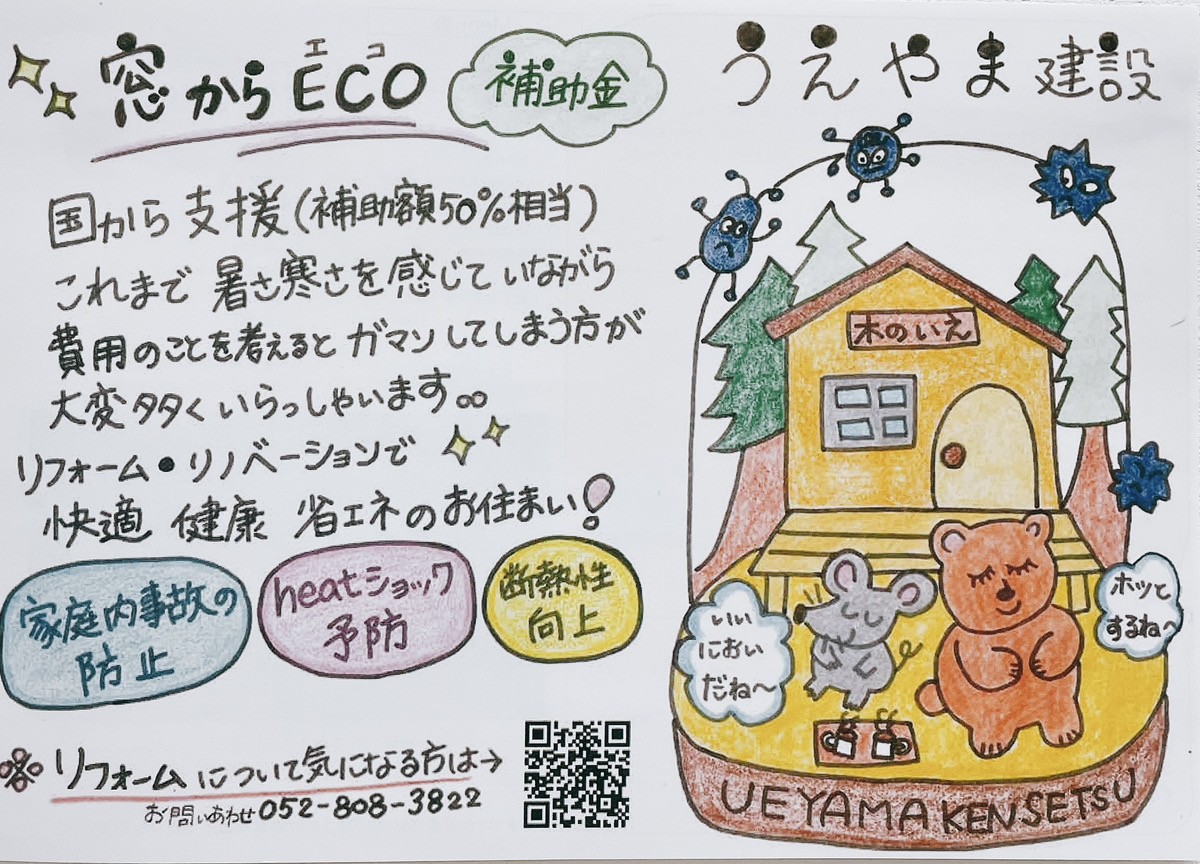 エコ
窓からECO
補助金
国から支援(補助額50%相当)
これまで暑さ寒さを感じていながら
費用のことを考えるとガマンしてしまう方が
大変多くいらっしゃいます。。
リフォーム・リノベーションで
快適 健康 省エネのお住まい!
家庭内事故の
防止
heatショック
予防
断熱性
向上
※リフォームについて気になる方は→
お問いあわせ052-808-3822
うえやま建設
木のいえ
いい
におい
だね~
ホッと
するね~
UEYAMA KENSETSU